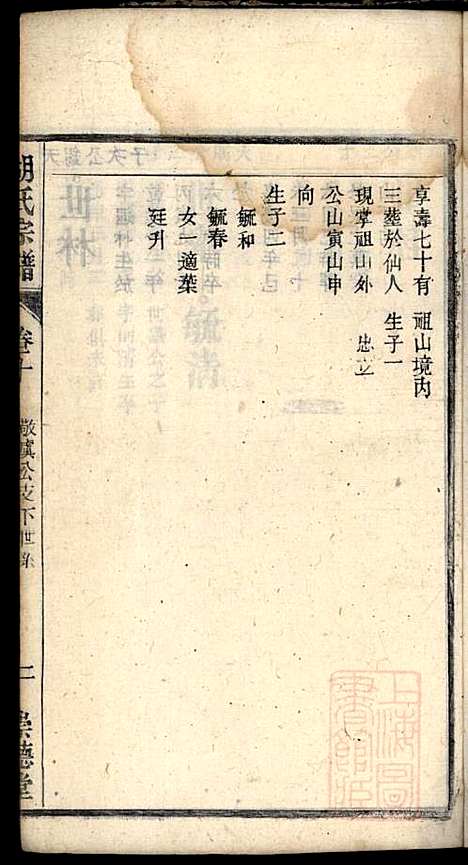 享壽七十有
三塟於仙人
現掌祖山外
公山寅山申
向
生子二
毓和
毓春
女一適葉
廷升
祖山境內
生子一
忠立
胡氏宗譜
卷十
敬真公支下世系
二
崇德堂
上海圖書館臧